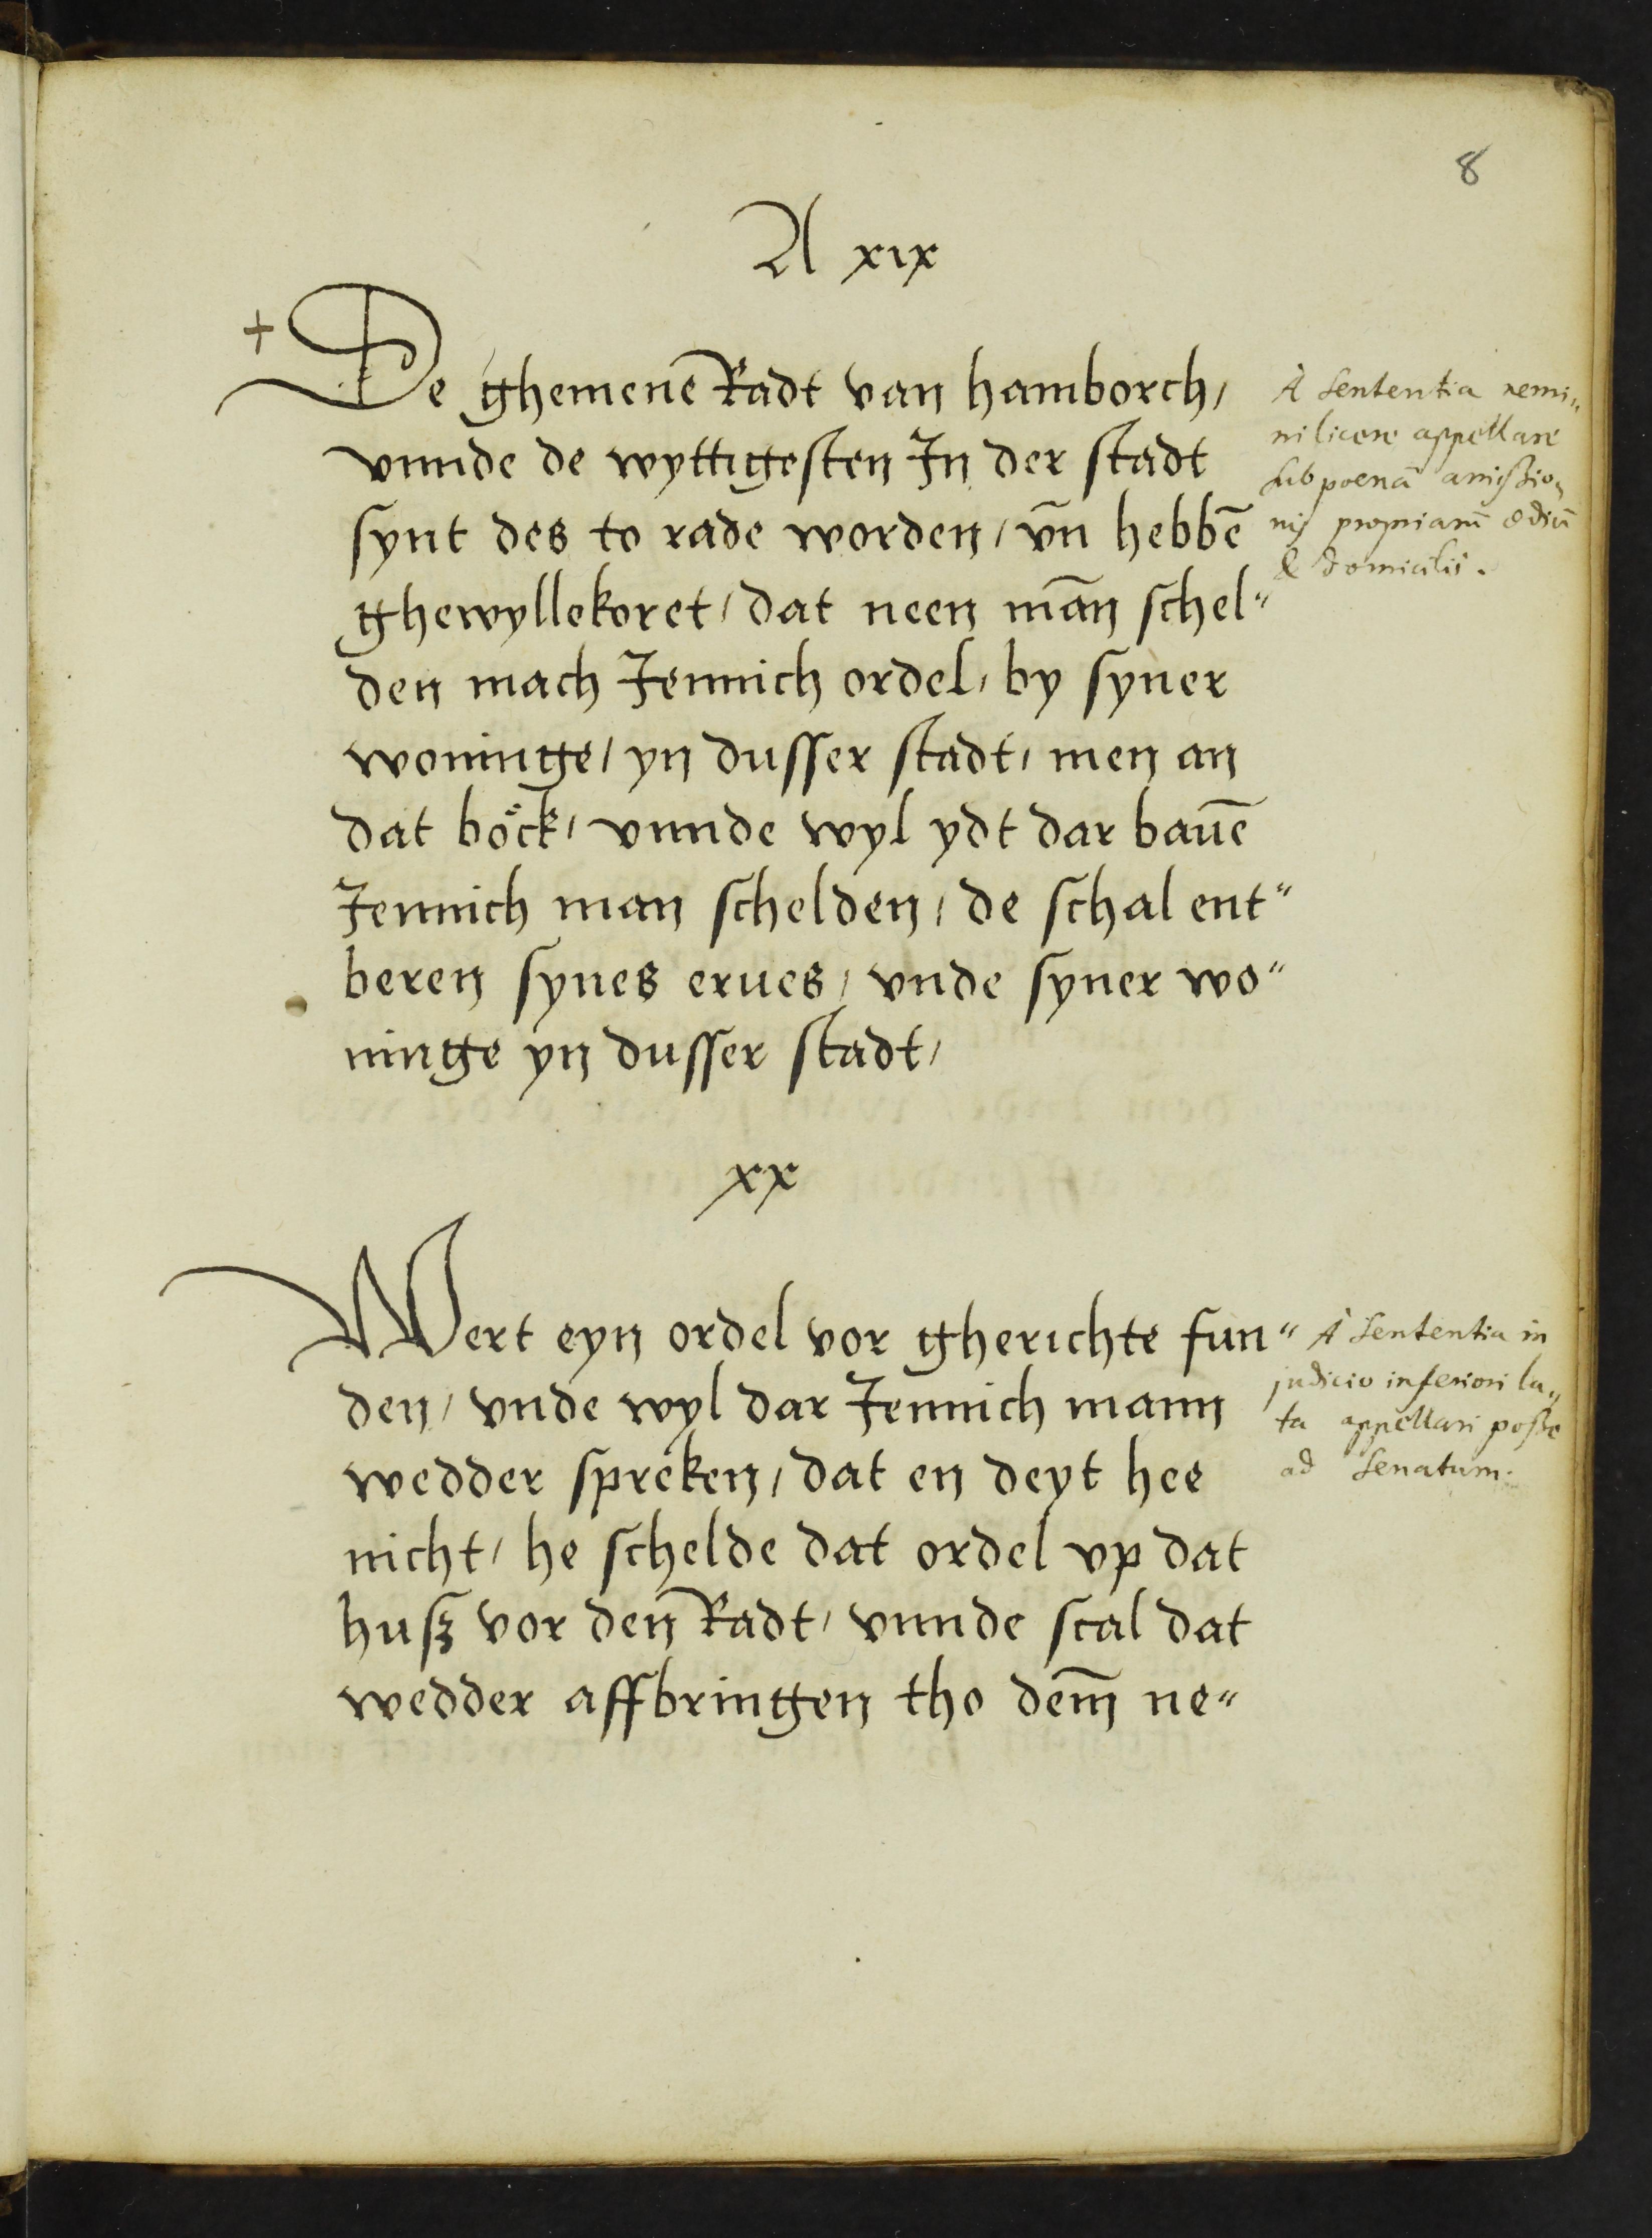 8
A xix
+
De ghemene Radt van hamborch/
vnnde de wyttigesten In der stadt
synt des to rade worden/ vn̄ hebbē
ghewyllekoret/ dat neen mān schel"
den mach Jennich ordel/ by syner
woninge/ yn dusser stadt/ men an
dat böck/ vnnde wyl ydt dar bauē
Jennich man schelden/ de schal ent"
beren synes erues/ vnde syner wo"
ninge yn dusser stadt/
À Sententia nemi„
ni licere appellare
sub poenā amissio„
nis propriarū ædiū
& domicilii.
xx
Wert eyn ordel vor gherichte fun"
den/ vnde wyl dar Jennich mann
wedder spreken/ dat en deyt hee
nicht/ he schelde dat ordel vp dat
husz vor den Radt/ vnnde scal dat
wedder affbringen tho dem̄ ne"
À Sententia in
judicio inferiori la„
ta appellari posse
ad Senatum.